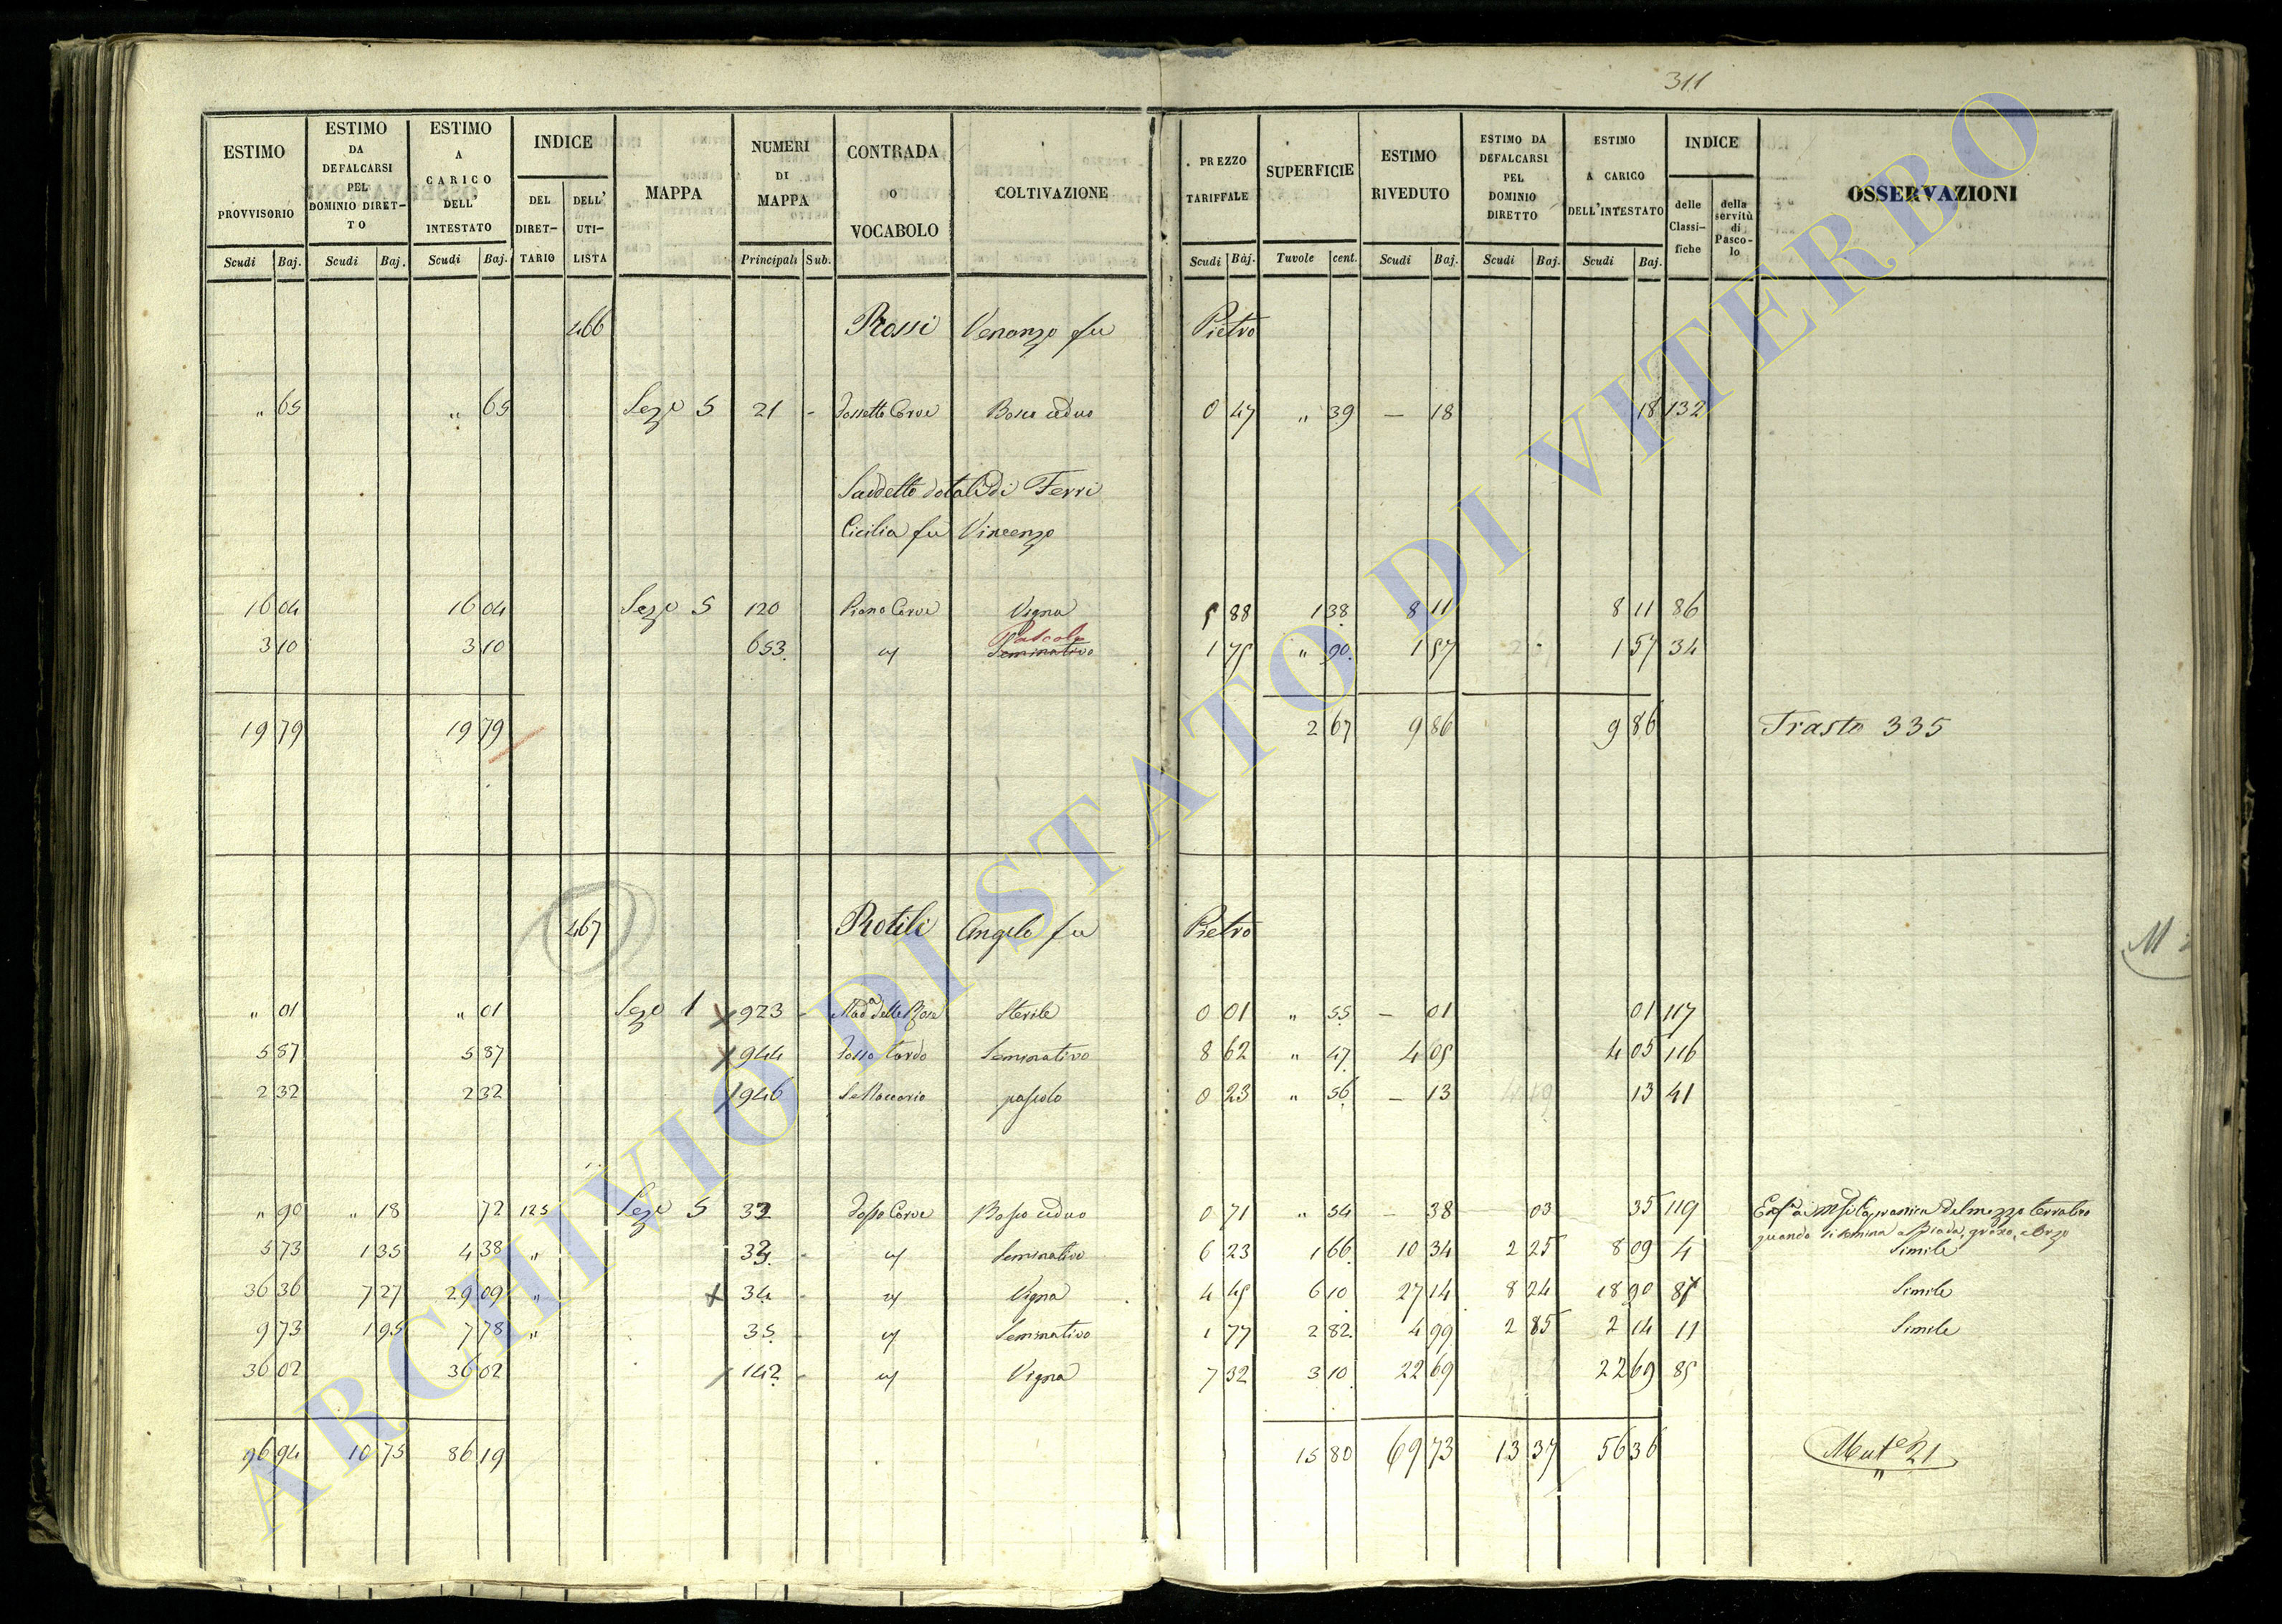 311
ESTIMO PROVVISORIO Scudi Baj.
ESTIMO DA DEFALCARSI PEL DOMINIO DIRET-TO Scudi Baj.
ESTIMO A CARICO DELL' INTESTATO Scudi Baj.
INDICE DEL DIRET-TARIO DELL' UTI-LISTA
MAPPA
NUMERI DI MAPPA Principali Sub.
CONTRADA O VOCABOLO
COLTIVAZIONE
PREZZO TARIFFALE Scudi Baj.
SUPERFICIE Tavole cent.
ESTIMO RIVEDUTO Scudi Baj.
ESTIMO DA DEFALCARSI PEL DOMINIO DIRETTO Scudi Baj.
ESTIMO A CARICO DELL'INTESTATO Scudi Baj.
INDICE delle Classi-fiche della servitù di Pasco-lo
OSSERVAZIONI
466 Rossi Venanzo fu Pietro
" 65 " 65 Seze 5 21 - Fossetto Corve Bosco ceduo 0 47 " 39 — 18 18 132
Suddetto dotali di Ferri
Cicilia fu Vincenzo
16 04 16 04 Seze 5 120 Piano Corve Vigna 5 88 1 38 8 11 8 11 86
Pascolo
3 10 3 10 653 Seminativo 1 75 " 90 1 57 1 57 34
19 79 19 79 2 67 9 86 9 86 Trasto 335
467 Rotili Angelo fu Pietro
" 01 " 01 Sezе 1 923 - Mad.a delle Rose Sterile 0 01 " 55 — 01 01 117
5 87 5 87 944 Fosso Tardo Seminativo 8 62 " 47 4 05 4 05 116
2 32 2 32 946 pascolo 0 23 " 56 — 13 13 41
" 90 " 18 72 125 Seze 5 32 Fosso Corve Bosco ceduo 0 71 " 54 — 38 03 35 119
quando si semina a Biada, grano, e Orzo
5 73 1 35 4 38 " 33 - Seminativo 6 23 1 66 10 34 2 25 8 09 4 Simile
36 36 7 27 29 09 " 34 - Vigna 4 45 6 10 27 14 8 24 18 90 87 Simile
9 73 1 95 7 78 " 35 - Seminativo 1 77 2 82 4 99 2 85 2 14 11 Simile
36 02 36 02 142 - Vigna 7 32 3 10 22 69 22 69 85
96 94 10 75 86 19 15 80 69 73 13 37 56 36 Mut.e 21
M
ARCHIVIO DI STATO DI VITERBO